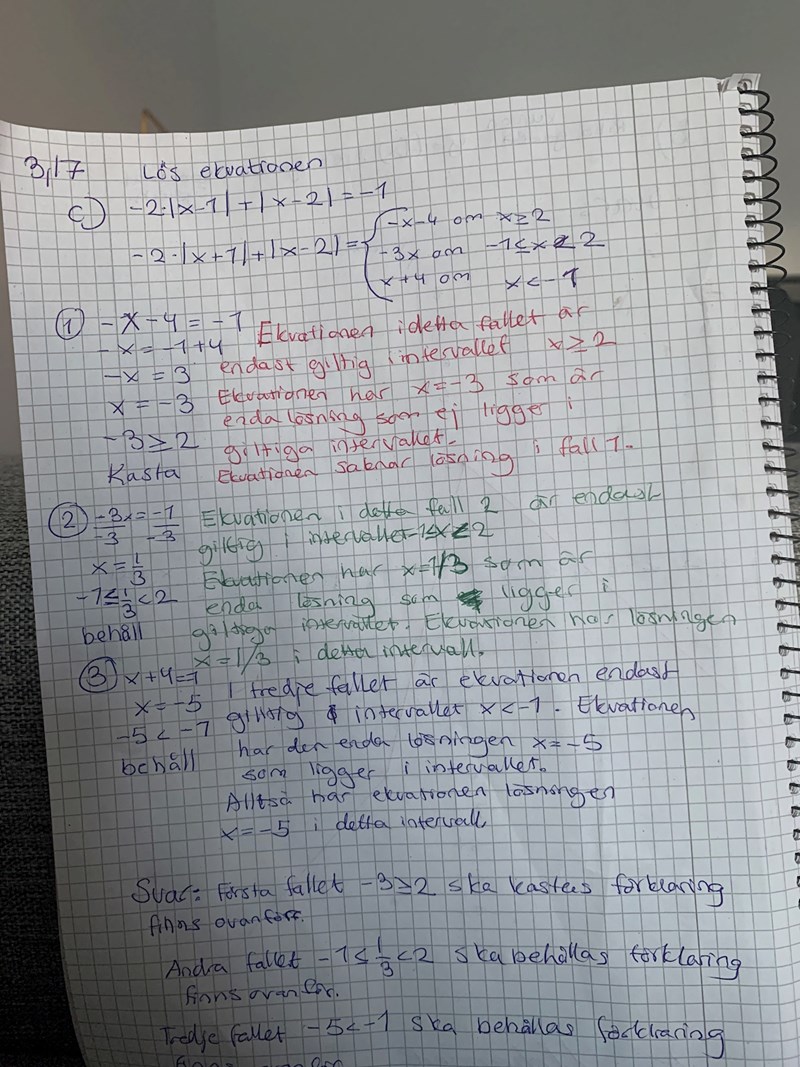 3,17 Lös ekvationen
c) -2·|x-1|+|x-2|=-1
-2·|x+1|+|x-2|={-x-4 om x≥2
-3x om -1≤x<2
x+4 om x<-1
① -x-4=-1 Ekvationen i detta fallet är
-x=-1+4 endast giltig i intervallet x≥2
-x=3 Ekvationen har x=-3 som är
x=-3 enda lösning som ej ligger i
-3≥2 giltiga intervallet.
Kasta Ekvationen saknar lösning i fall 1.
② -3x/-3=-1/-3 Ekvationen i detta fall 2 är endast
giltig i intervallet -1≤x<2
x=1/3 Ekvationen har x=1/3 som är
-1≤1/3<2 enda lösning som ligger i
behåll giltiga intervallet. Ekvationen har lösningen
x=1/3 i detta intervall.
③ x+4=-1 I tredje fallet är ekvationen endast
x=-5 giltig i intervallet x<-1. Ekvationen
-5<-1 har den enda lösningen x=-5
behåll som ligger i intervallet.
Alltså har ekvationen lösningen
x=-5 i detta intervall
Svar: Första fallet -3≥2 ska kastas förklaring
finns ovanför.
Andra fallet -1≤1/3<2 ska behållas förklaring
finns ovanför.
Tredje fallet -5<-1 ska behållas förklaring